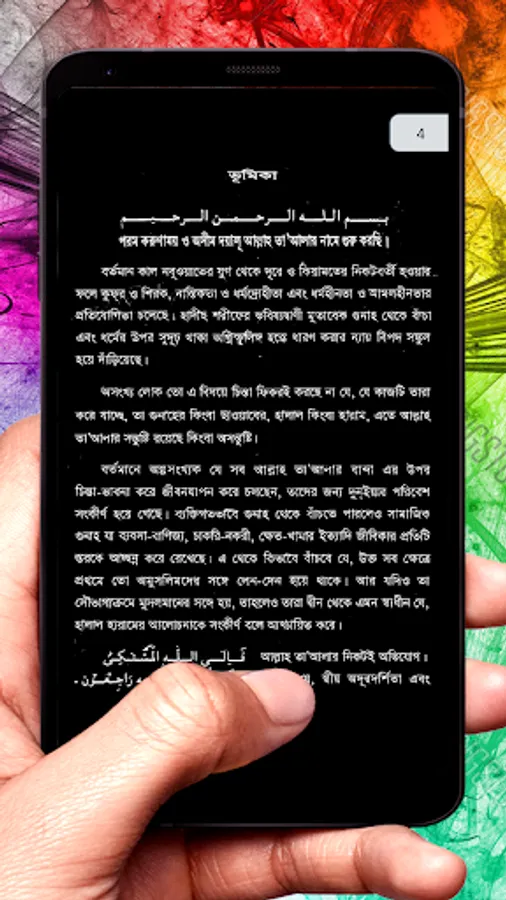 4
ভূমিকা
بسم الله الرحمن الرحيم
পরম করুণাময় ও অসীম দয়ালু আল্লাহ তা'আলার নামে শুরু করছি।
বর্তমান কাল নবুওয়াতের যুগ থেকে দূরে ও কিয়ামতের নিকটবর্তী হওয়ার
ফলে কুফ্র ও শিরক, নাস্তিকতা ও ধর্মদ্রোহীতা এবং ধর্মহীনতা ও আমলহীনতার
প্রতিযোগিতা চলেছে। হাদীছ শরীফের ভবিষ্যদ্বাণী মুতাবেক গুনাহ থেকে বাঁচা
এবং ধর্মের উপর সুদৃঢ় থাকা অগ্নিস্ফুলিঙ্গ হস্তে ধারণ করার ন্যায় বিপদ সঙ্কুল
হয়ে দাঁড়িয়েছে।
অসংখ্য লোক তো এ বিষয়ে চিন্তা ফিকরই করছে না যে, যে কাজটি তারা
করে যাচ্ছে, তা গুনাহের কিংবা ছাওয়াবের, হালাল কিংবা হারাম, এতে আল্লাহ
তা'আলার সন্তুষ্টি রয়েছে কিংবা অসন্তুষ্টি।
বর্তমানে অল্পসংখ্যক যে সব আল্লাহ তা'আলার বান্দা এর উপর
চিন্তা-ভাবনা করে জীবনযাপন করে চলছেন, তাদের জন্য দুনইয়ার পরিবেশ
সংকীর্ণ হয়ে গেছে। ব্যক্তিগতভাবে গুনাহ থেকে বাঁচতে পারলেও সামাজিক
গুনাহ যা ব্যবসা-বাণিজ্য, চাকরি-নকরী, ক্ষেত-খামার ইত্যাদি জীবিকার প্রতিটি
স্তরকে আচ্ছন্ন করে রেখেছে। এ থেকে কিভাবে বাঁচবে যে, উক্ত সব ক্ষেত্রে
প্রথমে তো অমুসলিমদের সঙ্গে লেন-দেন হয়ে থাকে। আর যদিও তা
সৌভাগ্যক্রমে মুসলমানের সঙ্গে হয়, তাহলেও তারা দ্বীন থেকে এমন স্বাধীন যে,
হালাল হারামের আলোচনাকে সংকীর্ণ বলে আখ্যায়িত করে।
فَإِلَى اللهِ الْمُشْتَكَى আল্লাহ তা'আলার নিকটই অভিযোগ।
راجعون স্বীয় অদূরদর্শিতা এবং